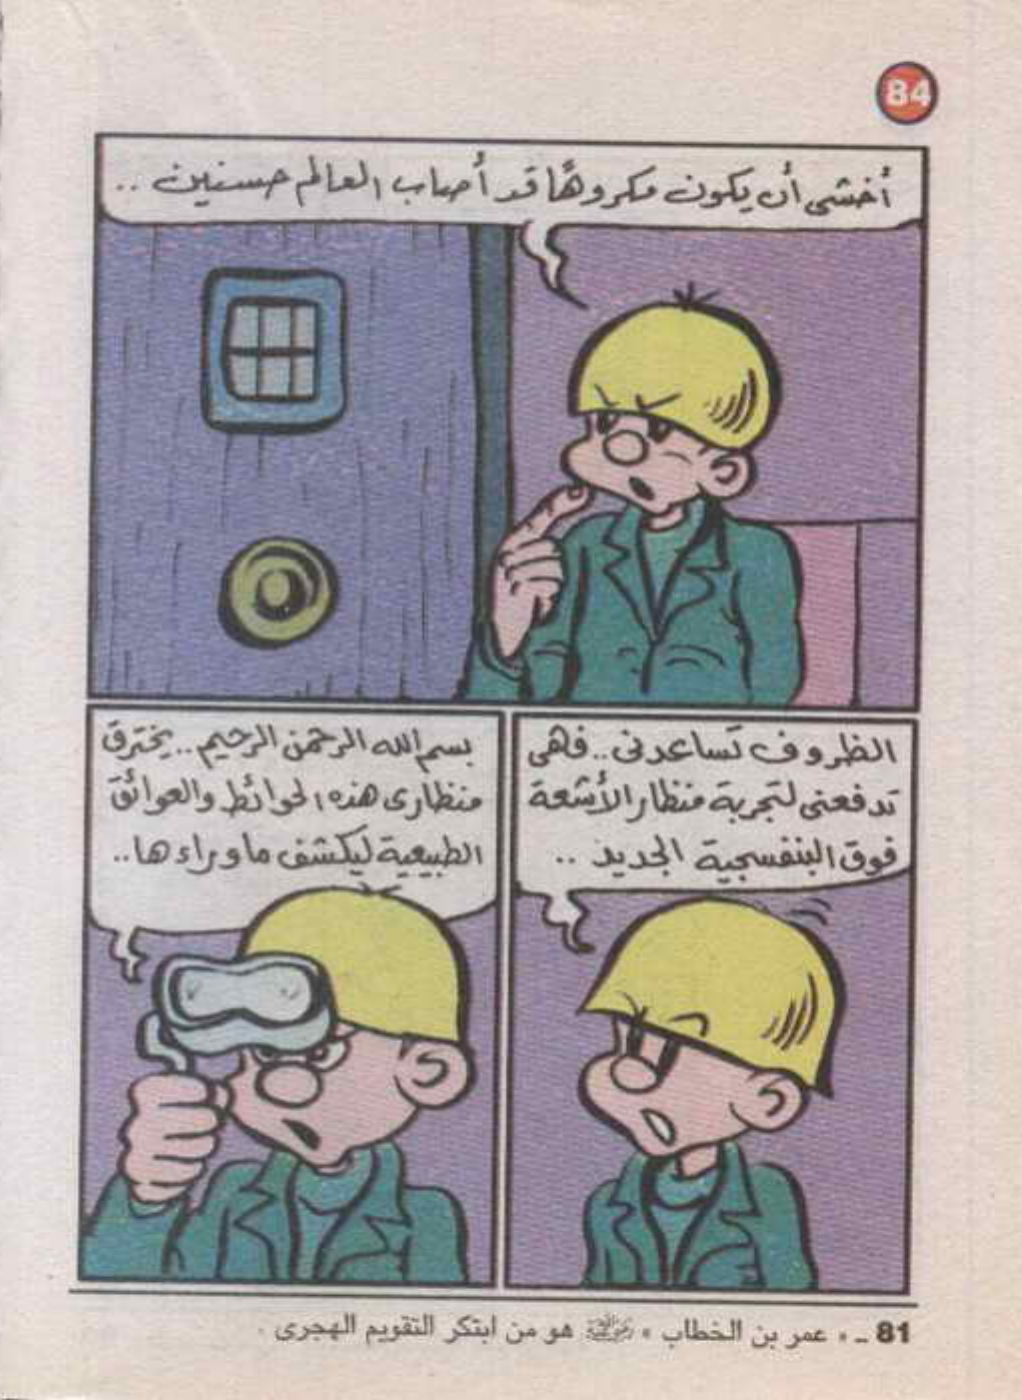 84
أخشى أن يكون مكروهًا قد أصاب العالم حسنين ..
الظروف تساعدنى .. فهى
تدفعنى لتجربة منظار الأشعة
فوق البنفسجية الجديد ..
بسم الله الرحمن الرحيم .. يخترق
منظارى هذه الحوائط والعوائق
الطبيعية ليكشف ما وراءها ..
81 ـ « عمر بن الخطاب » رضي الله عنه هو من ابتكر التقويم الهجرى .